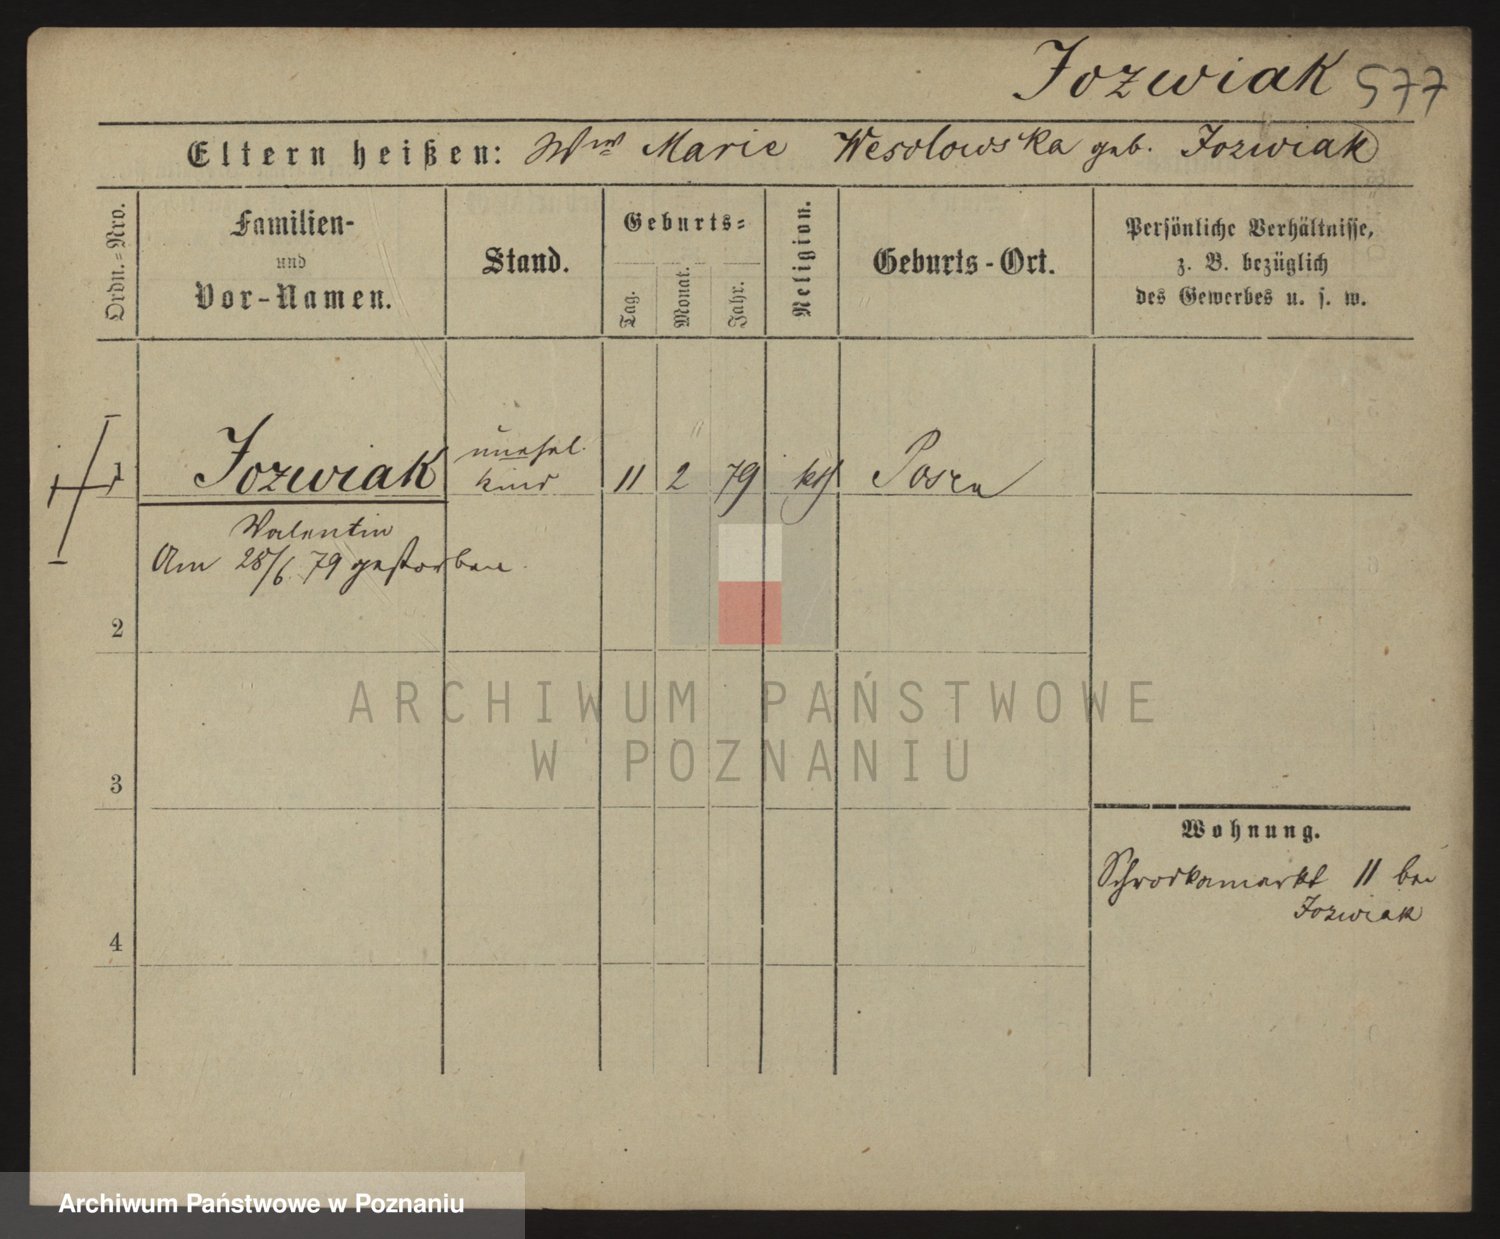 Jozwiak 577
Eltern heißen: Wwe Marie Wesolowska geb. Jozwiak
Ordn.=Nro.
Familien-
und
Vor-Namen.
Stand.
Geburts=
Tag.
Monat.
Jahr.
Religion.
Geburts-Ort.
Persönliche Verhältnisse,
z. B. bezüglich
des Gewerbes u. s. w.
1 Jozwiak unehel. Kind 11 2 79 kth Posen
Valentin
Am 28/6. 79 gestorben.
2
ARCHIWUM PAŃSTWOWE
W POZNANIU
3
Wohnung.
Schrodkamarkt 11 bei
Jozwiak
4
Archiwum Państwowe w Poznaniu